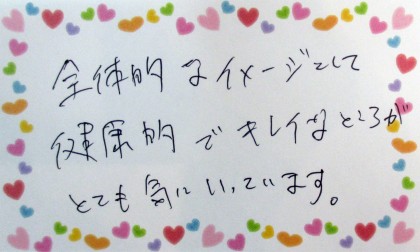 全体的なイメージとして
健康的でキレイなところが
とても気にいっています。